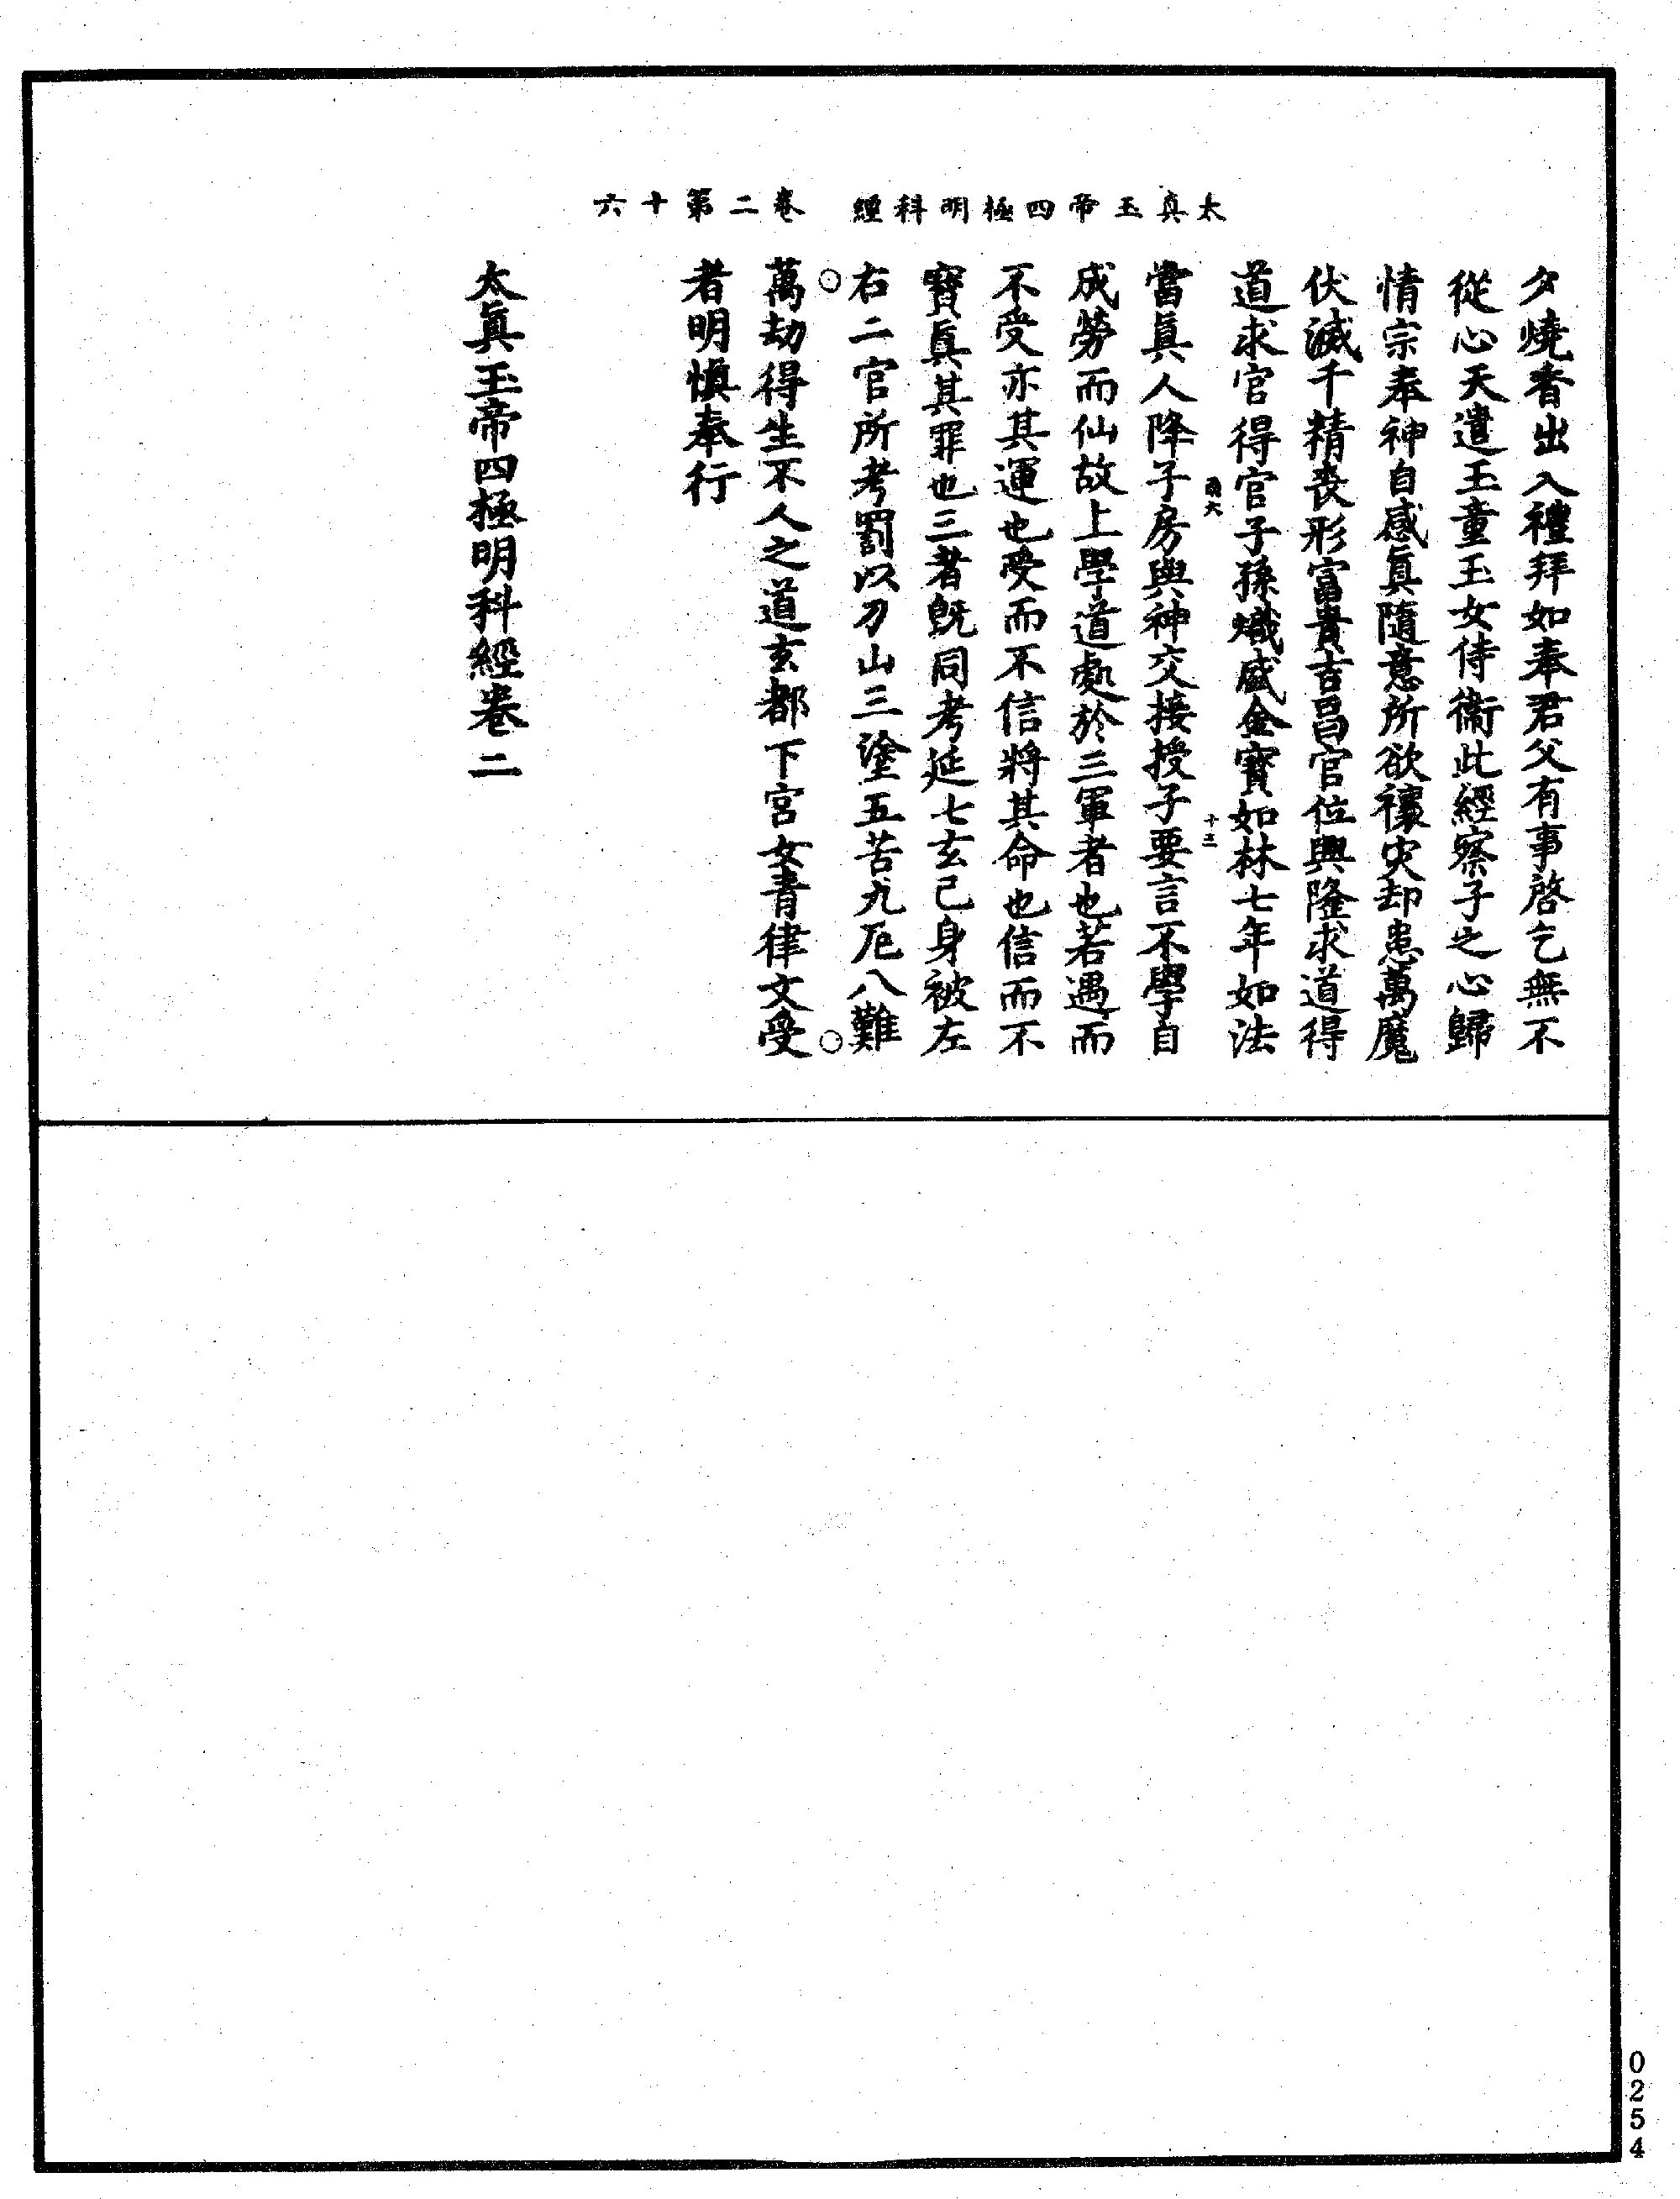 太真玉帝四極明科經　卷二第十六
夕燒香出入禮拜如奉君父有事啓乞無不
從心天遣玉童玉女侍衛此經察子之心歸
情宗奉神自感眞隨意所欲禳灾却患萬魔
伏滅千精喪形富貴吉昌官位興隆求道得
道求官得官子孫熾盛金寶如林七年如法
十三
當眞人降子房與神交接授子要言不學自
成勞而仙故上學道處於三軍者也若遇而
不受亦其運也受而不信將其命也信而不
寶眞其罪也三者旣同考延七玄己身被左
右二官所考罰以刀山三塗五苦九厄八難
萬劫得生不人之道玄都下宮女青律文受
者明慎奉行
太眞玉帝四極明科經卷二
0254